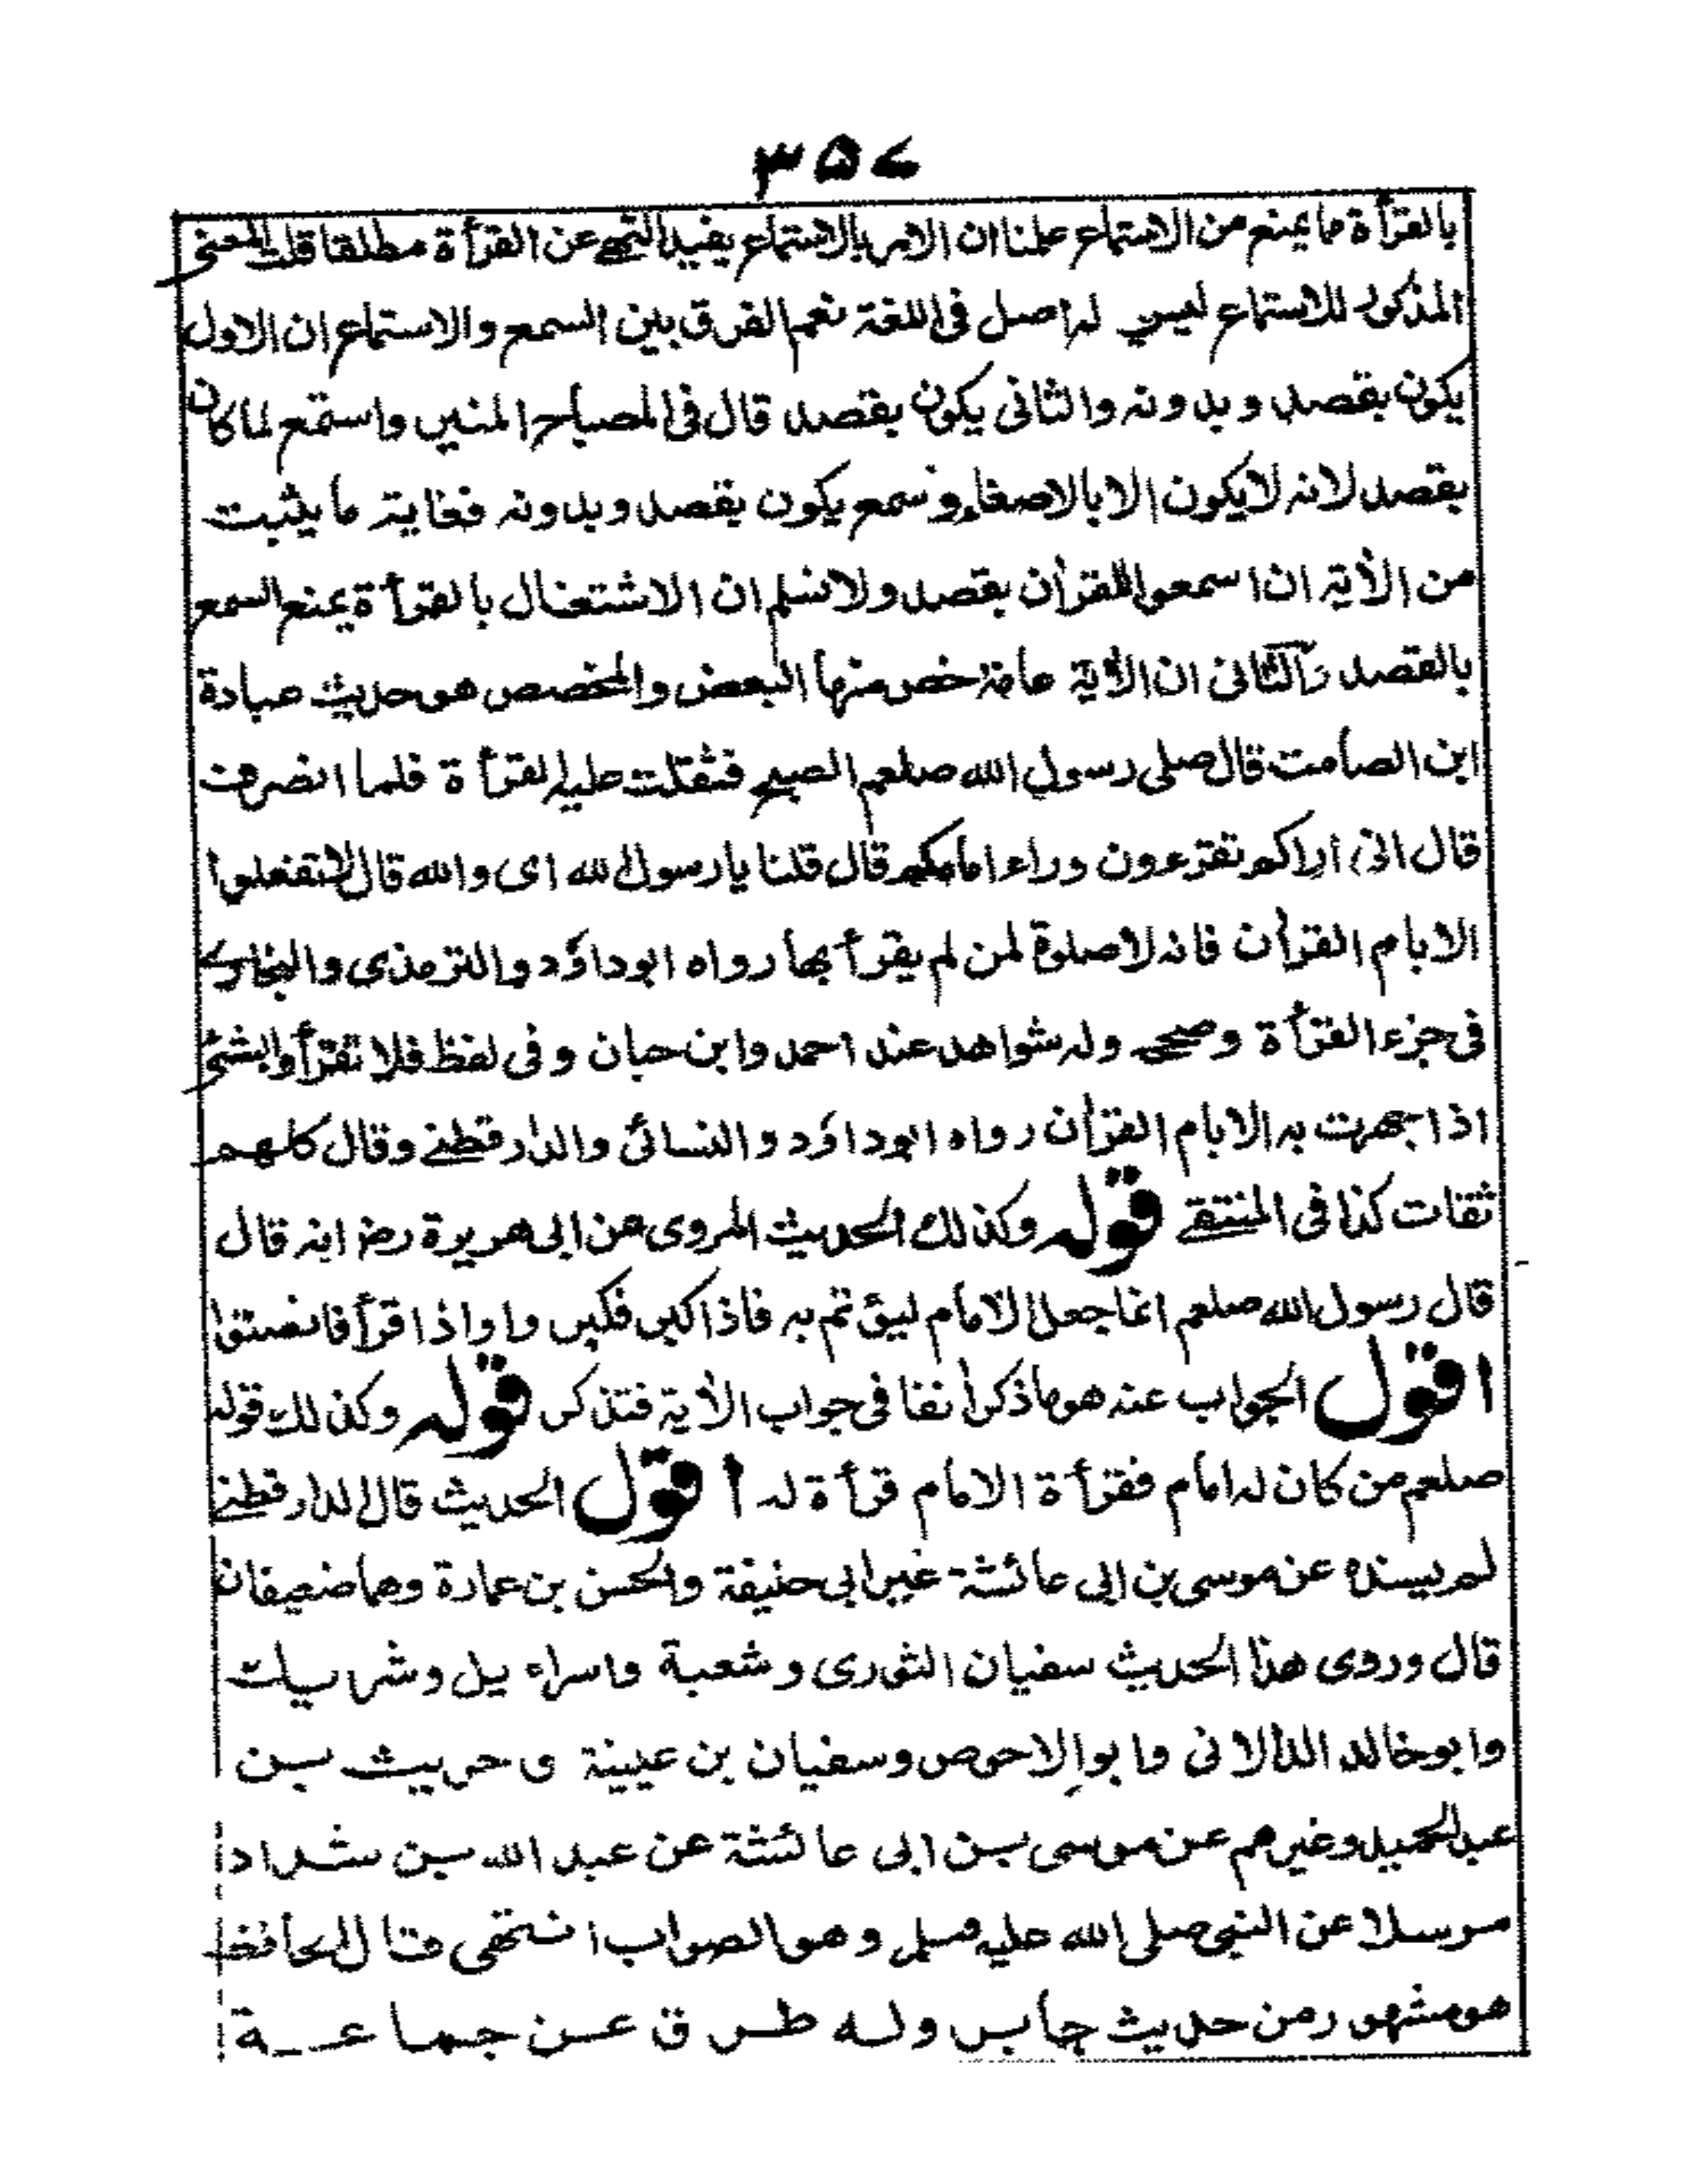 ۳۵۷
بالقرأة مما يمنع من الاستماع علمنا ان الامر بالاستماع يفيد النهى عن القرأة مطلقا قلت المعنى
المذكور للاستماع ليس له اصل فى اللغة نعم الفرق بين السمع والاستماع ان الاول
يكون بقصد وبدونه والثانى يكون بقصد قال فى المصباح المنير واستمع لما كان
بقصد لانه لا يكون الا بالاصغاء وسمع يكون بقصد وبدونه فغاية ما يثبت
من الأية ان اسمعوا القرأن بقصد ولا نسلم ان الاشتغال بالقرأة يمنع السمع
بالقصد والثانى ان الأية عامة خص منها البعض والمخصص هو حديث عبادة
ابن الصامت قال صلى رسول الله صلعم الصبح فثقلت عليه القرأة فلما انصرف
قال انى اراكم تقرءون وراء امامكم قال قلنا يا رسول الله اى والله قال لا تفعلوا
الا بام القرأن فانه لا صلوة لمن لم يقرأ بها رواه ابو داؤد والترمذى والبخارى
فى جزء القرأة وصححه وله شواهد عند احمد وابن حبان وفى لفظ فلا تقرأوا بشئ
اذا جهرت به الا بام القرأن رواه ابو داؤد والنسائى والدارقطنى وقال كلهم
ثقات كذا فى المنتقى قوله وكذلك الحديث المروى عن ابى هريرة رض انه قال
قال رسول الله صلعم انما جعل الامام ليؤتم به فاذا كبر فكبروا واذا قرأ فانصتوا
اقول الجواب عنه هو ما ذكر أنفا فى جواب الأية فتذكر قوله وكذلك قوله
صلعم من كان له امام فقرأة الامام قرأة له اقول الحديث قال الدارقطنى
لم يسنده عن موسى بن ابى عائشة غير ابى حنيفة والحسن بن عمارة وهما ضعيفان
قال وروى هذا الحديث سفيان الثورى وشعبة واسراءيل وشريك
وابو خالد الدالانى وابو الاحوص وسفيان بن عيينة وحريث بن
عبد الحميد وغيرهم عن موسى بن ابى عائشة عن عبد الله بن شداد
مرسلا عن النبى صلى الله عليه وسلم وهو الصواب انتهى وقال الحافظ
هو مشهور من حديث جابر وله طرق عن جماعة